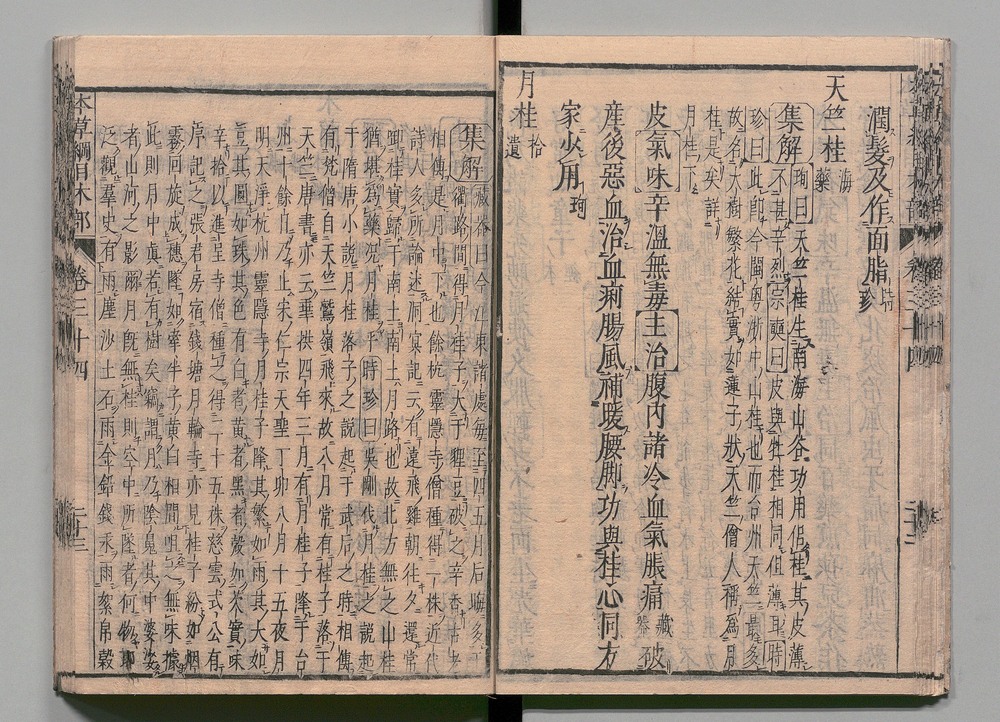 潤髮及作面脂 時珍
天竺桂 海藥
集解 珣曰天竺桂生南海山谷功用似桂其皮薄
不甚辛烈宗奭曰皮與牡桂相同但薄耳時
珍曰此即今閩粤浙中山桂也而台州天竺最多
故名大樹繁花結實如蓮子狀天竺僧人稱為月
桂是矣詳
月桂下
皮氣味辛溫無毒主治腹內諸冷血氣脹痛 藏器 破
產後惡血治血痢腸風補暖腰脚功與桂心同方
家少用 珣
月桂 拾遺
集解 藏器曰今江東諸處每至四五月后晦多于
衢路間得月桂子大于貍豆破之辛香古老
相傳是月中下也餘杭靈隱寺僧種得一株近代
詩人多所論述洞冥記云有遠飛雞朝往夕還常
啣桂實歸于南土南土月路也故北方無之山桂
猶堪為藥況月桂乎時珍曰吳剛伐月桂之說起
于隋唐小說月桂落子之說起于武后之時相傳
有梵僧自天竺鷲嶺飛來故八月常有桂子落于
天竺唐書亦云垂拱四年三月有月桂子降于台
州十餘日乃止宋仁宗天聖丁卯八月十五夜月
明天淨杭州靈隱寺月桂子降其繁如雨其大如
豆其圓如珠其色有白者黃者黑者殼如芡實味
辛拾以進呈寺僧種之得二十五株慈雲式公有
序記之張君房宿錢塘月輪寺亦見桂子紛如烟
霧回旋成穗墜如牽牛子黃白相間咀之無味據
此則月中真若有樹矣竊謂月乃陰魄其中婆娑
者山河之影爾月既無桂則空中所墜者何物耶
泛觀羣史有雨塵沙土石雨金鉛錢汞雨絮帛穀
本草綱目木部
卷三十四